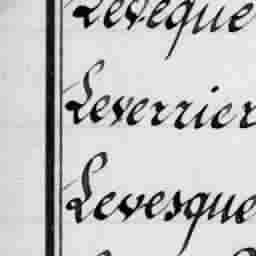 Levêque
Leverrier
Levesque